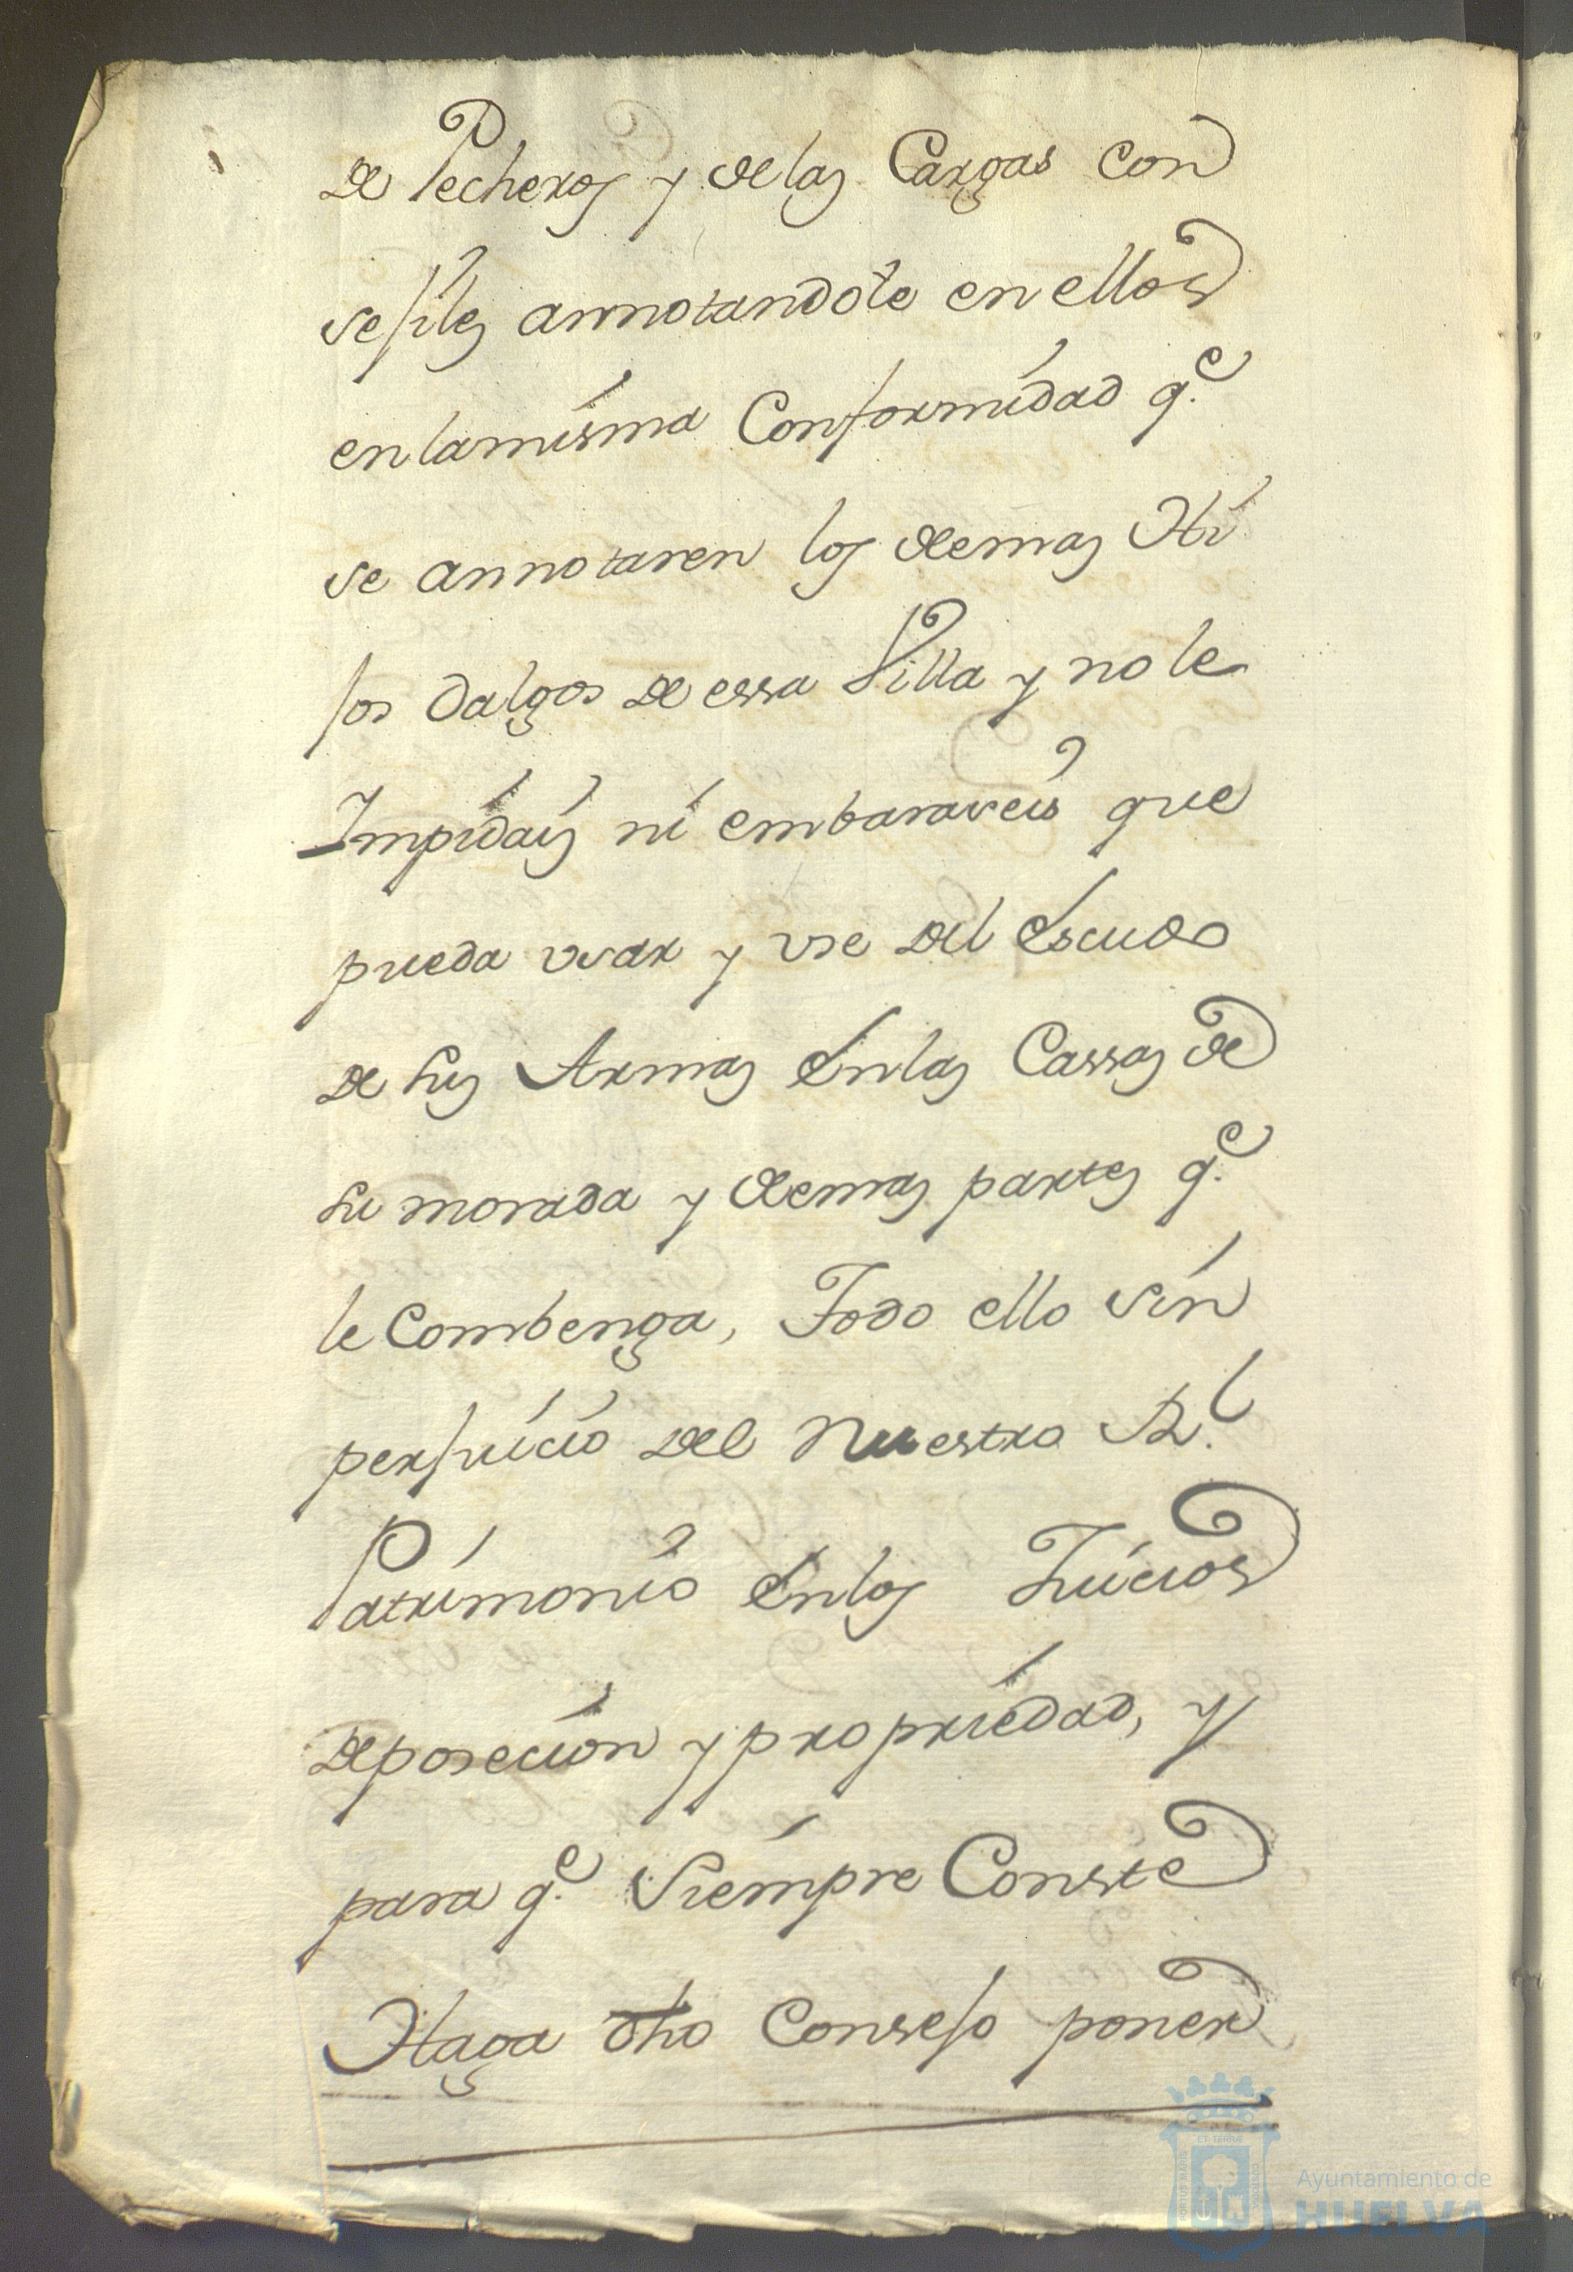 de Pecheros y de las Cargas con
sejiles annotandole en ellos
en la misma Conformidad q.e
se annotaren los demas Hi
jos dalgos de essa Villa y no le
Impidais ni embaraseis que
pueda usar y use del escudo
de sus Armas en las Cassas de
su morada y demas partes q.e
le Combenga, Todo ello sin
perjuicio del Nuestro R.l
Patrimonio en los Juicios
de posecion y propriedad, y
para q.e Siempre Conste
Haga dho Consejo poner
Ayuntamiento de
HUELVA